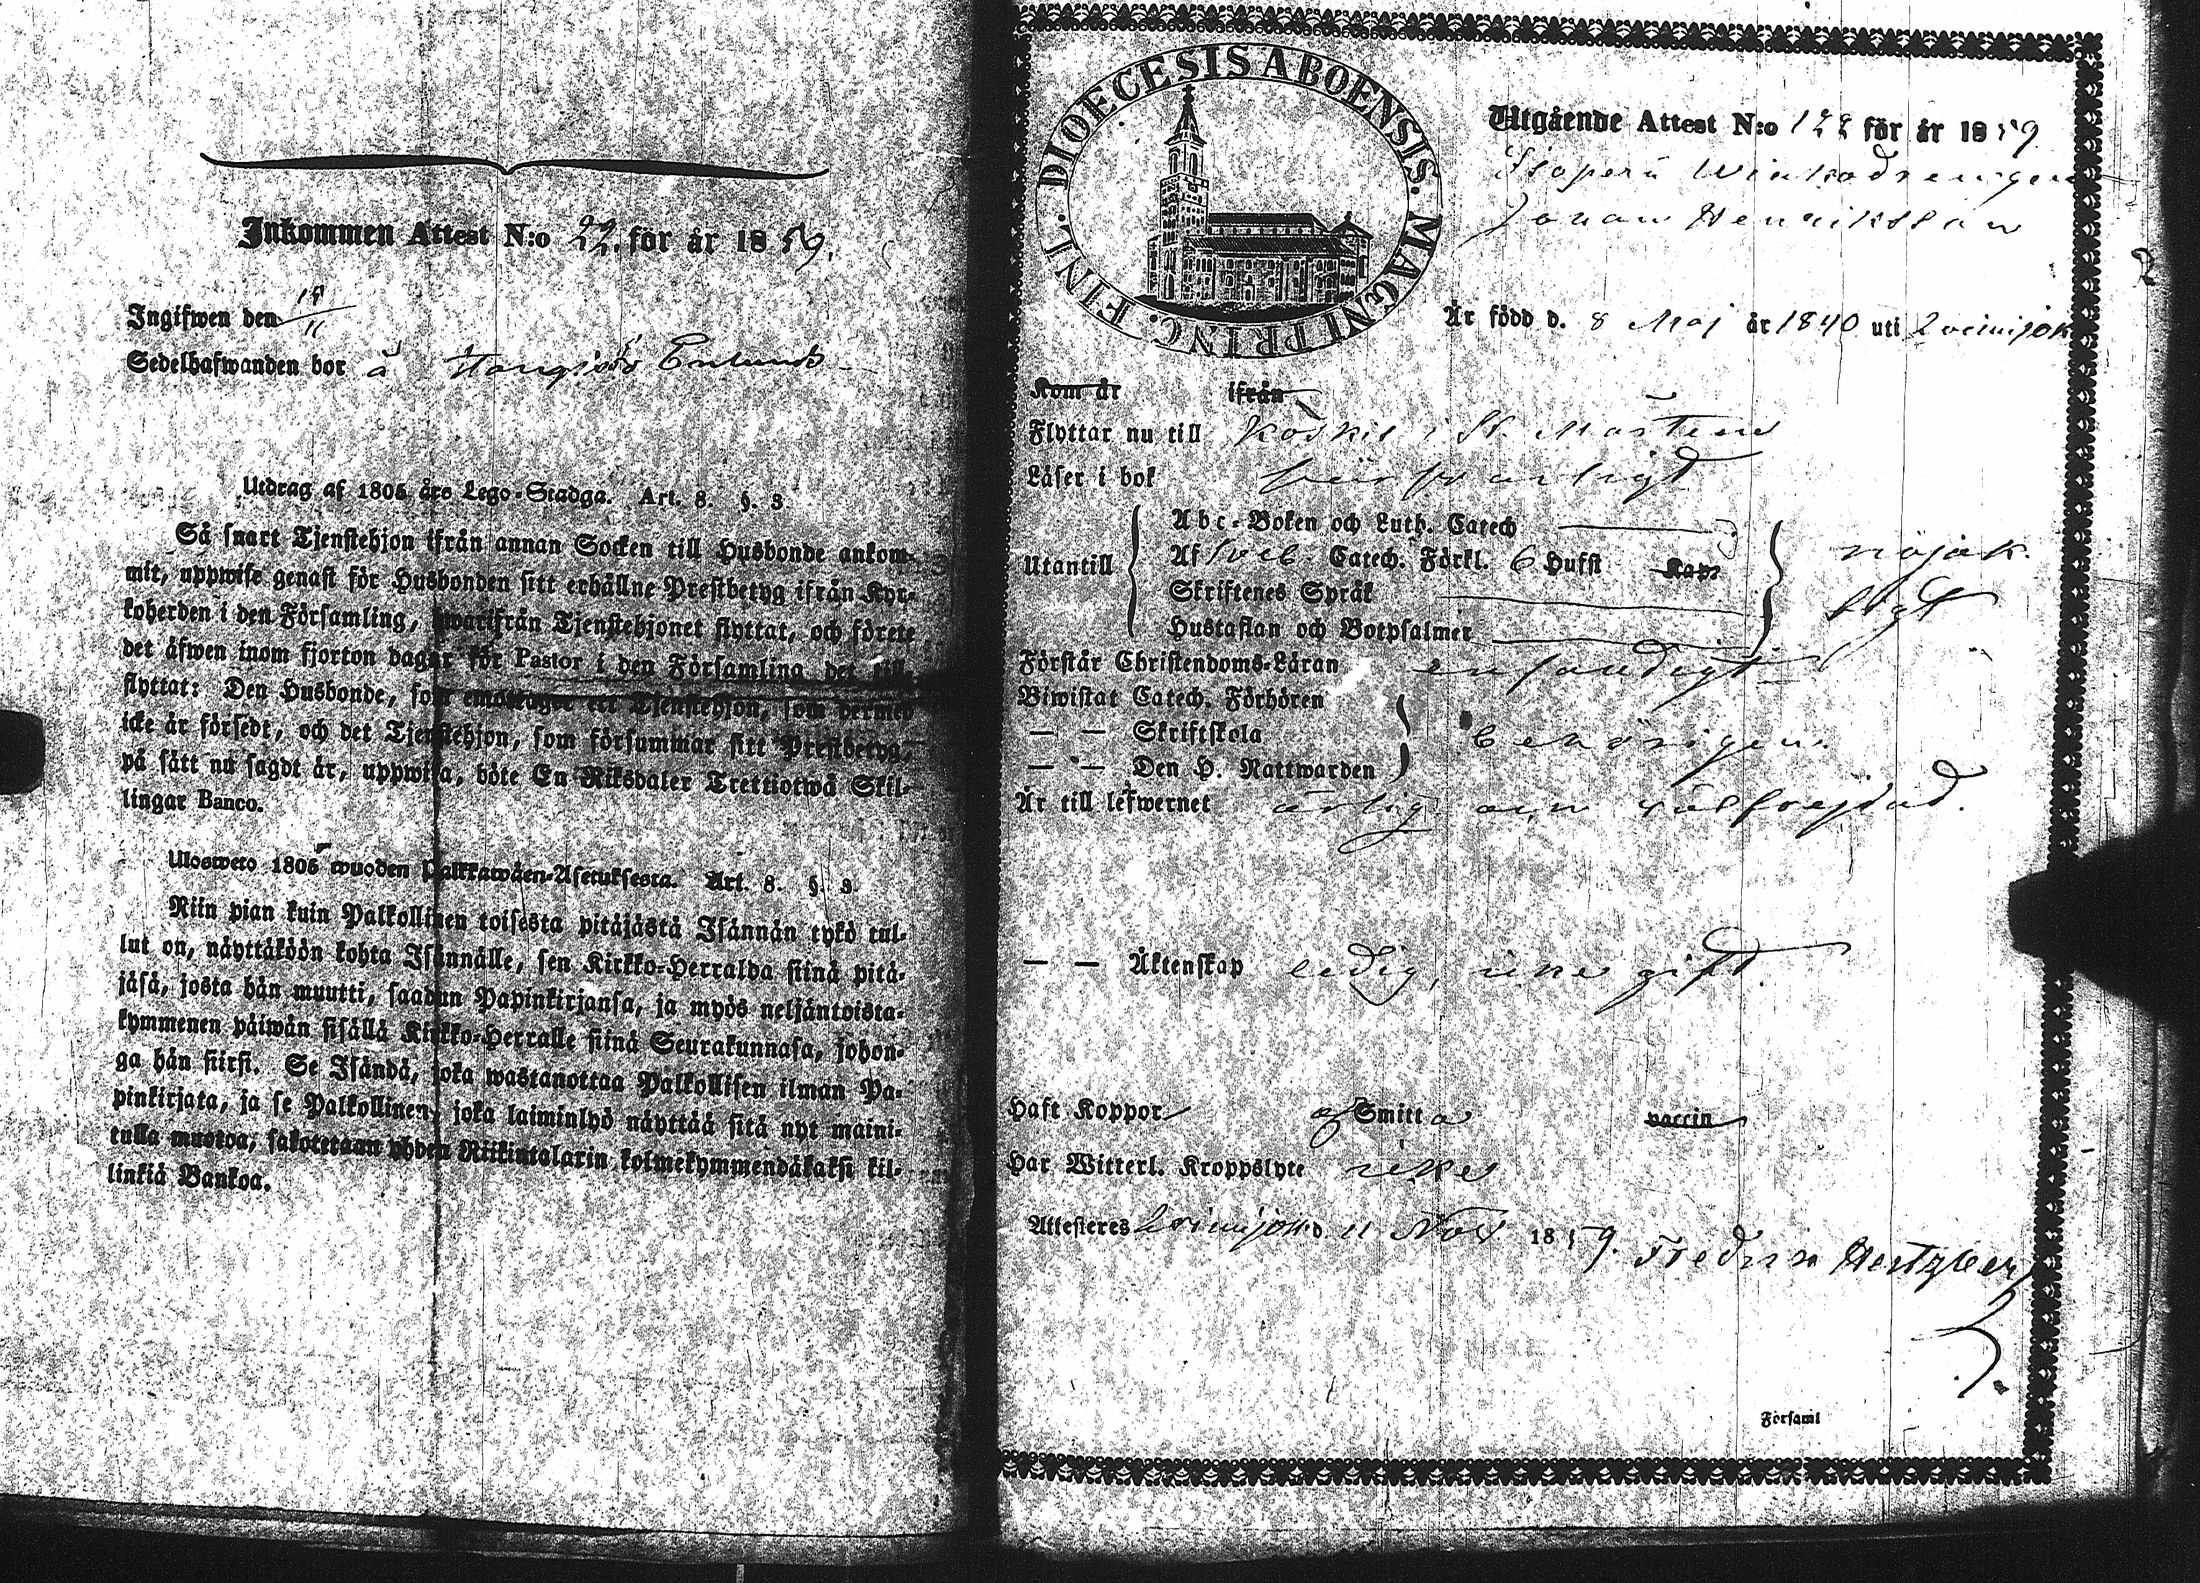 Inkommen Attest N:o 22. för år 1859.
Ingifwen den 18/11
Sedelhafwanden bor å
Utdrag af 1805 års Lego-Stadga. Art. 8. §. 3
Så snart Tjenstehjon ifrån annan Socken till Husbonde ankom-
mit, uppwise genast för Husbonden sitt erhållne Prestbetyg ifrån Kyr-
koherden i den Församling, hwarifrån Tjenstehjonet flyttat, och förete
det äfwen inom fjorton dagar för Pastor i den Församling det till-
flyttat: Den Husbonde, som emottager ett Tjenstehjon, som dermed
icke är försedt, och det Tjenstehjon, som försummar sitt Prestbetyg,
på sätt nu sagdt är, uppwisa, böte En Riksdaler Trettiotwå Skil-
lingar Banco.
Ulosweto 1805 wuoden Palkkawäen-Asetuksesta. Art. 8. §. 3.
Niin pian kuin Palkollinen toisesta pitäjästä Isännän tykö tul-
lut on, näyttäköön kohta Isännälle, sen Kirkko-Herralda siinä pitä-
jäsä, josta hän muutti, saadun Papinkirjansa, ja myös neljäntoista-
kymmenen päiwän sisällä Kirkko-Herralle siinä Seurakunnasa, johon-
ga hän siirsi. Se Isändä, joka wastanottaa Palkollisen ilman Pa-
pinkirjata, ja se Palkollinen, joka laiminlyö näyttää sitä nyt maini-
tulla muotoa, sakotetaan yhden Riikintalarin kolmekymmendäkaksi kil-
linkiä Bankoa.
DIOECESIS ABOENSIS. MAGNI PRINC. FINL.
Utgående Attest N:o 122 för år 1859.
Johan Henriksson
Är född d. 8 Maj år 1840 uti Loimijoki
Kom år ifrån
Flyttar nu till Koskis i St. Mårtens
Läser i bok försvarligt
Utantill
Abc-Boken och Luth. Catech
Af Sveb. Catech. Förkl. 6 Hufst Kap.
Skriftenes Språk
Hustaflan och Botpsalmer
nöjak
ligt
Förstår Christendoms-Läran enfaldigt
Biwistat Catech. Förhören
— — Skriftskola
— — Den H. Nattwarden
behörigen.
Är till lefwernet ärlig och välfrejdad.
— — Äktenskap ledig, icke gift.
Haft Koppor af Smitta vaccin
Har Witterl. Kroppslyte icke
Attesteras Loimijoki d 11 Nov 1859. Fredrik Hertzberg
Församl